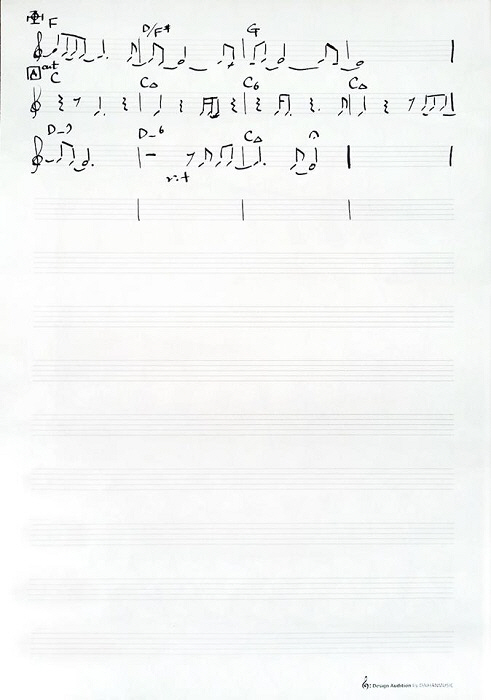 F D/F# G
A out
C C△ C6 C△
D-7 D-6 C△
rit
Design Audition by